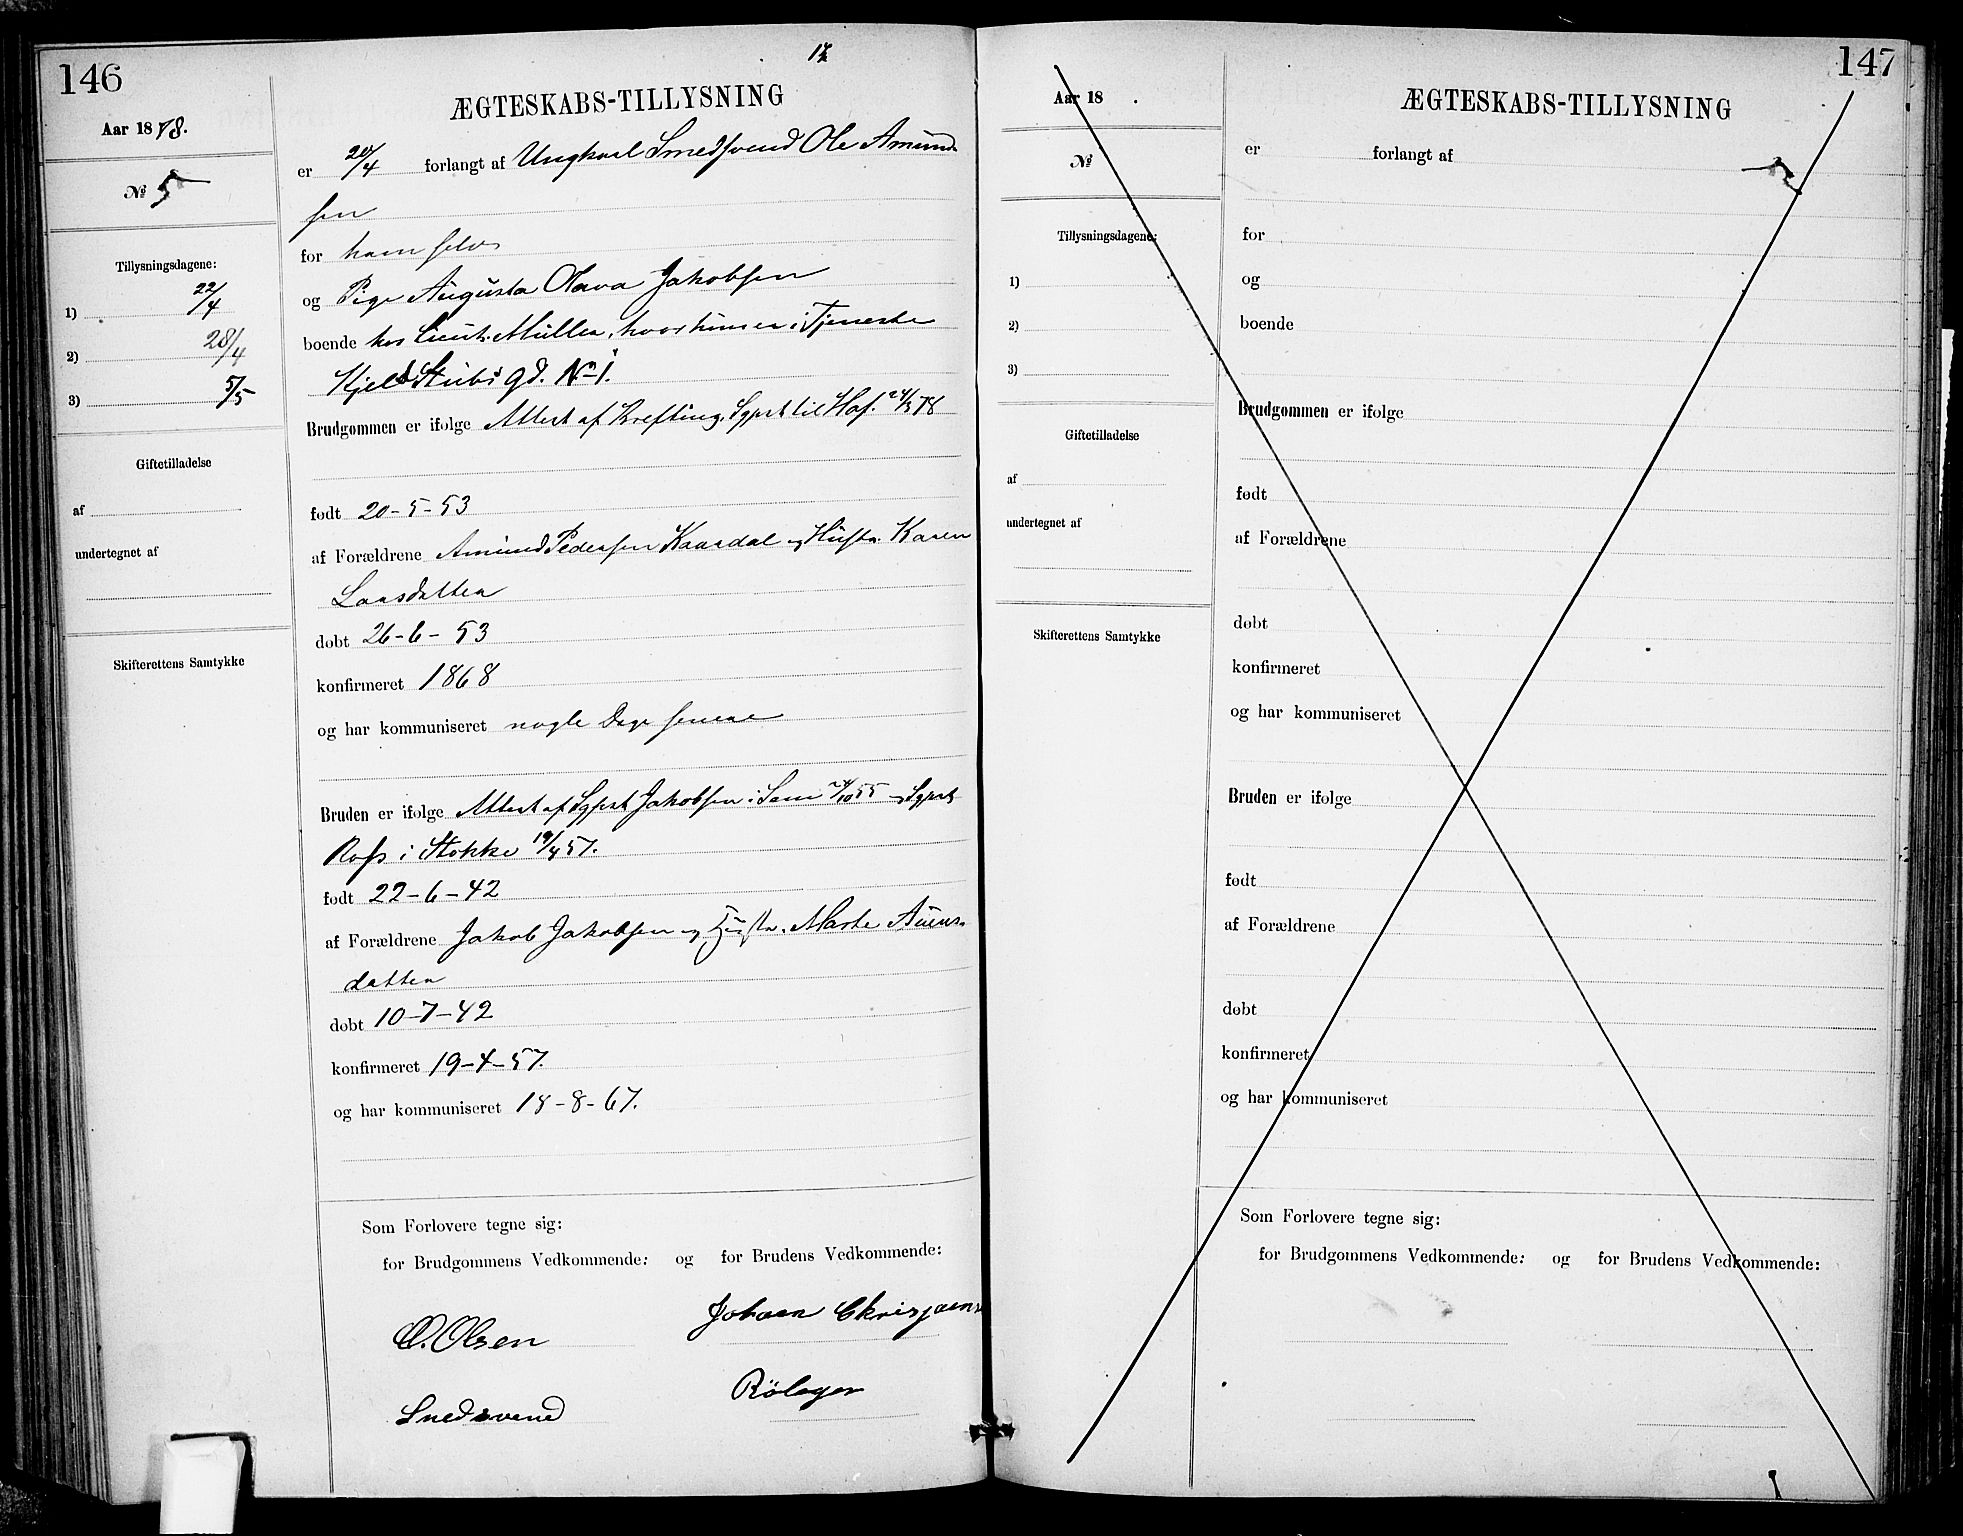 146
14
Aar 1878.
ÆGTESKABS-TILLYSNING
No 5
er 20/4 forlangt af Ungkarl Smedsvend Ole Amund-
sen
for ham selv
og Pige Augusta Olava Jakobsen
boende hos Lieut. Müller, hvor hun er i Tjeneste
Kjeld Stubs gd. No 1.
Tillysningsdagene:
1) 22/4
2) 28/4
3) 5/5
Giftetilladelse
af
undertegnet af
Skifterettens Samtykke
Brudgommen er ifølge Attest af Krefting, Sgprst til Hof. 24/3 78
født 20-5-53
af Forældrene Amund Pedersen Kaasdal og Hustr. Karen
Larsdatter
døbt 26-6-53
konfirmeret 1868
og har kommuniseret nogle Dage senere
Bruden er ifølge Attest af Sgprst Jakobsen i Sem 24/10 55 og Sgprst
Rofs i Stokke 19/4 57.
født 22-6-42
af Forældrene Jakob Jakobsen og Hustr. Marte Auens-
datter
døbt 10-7-42
konfirmeret 19-4-57.
og har kommuniseret 18-8-67.
Som Forlovere tegne sig:
for Brudgommens Vedkommende: og for Brudens Vedkommende:
O. Olsen
Johaen
Smedsvend
147
Aar 18 .
ÆGTESKABS-TILLYSNING
No
er forlangt af
for
og
boende
Tillysningsdagene:
1)
2)
3)
Giftetilladelse
af
undertegnet af
Skifterettens Samtykke
Brudgommen er ifølge
født
af Forældrene
døbt
konfirmeret
og har kommuniseret
Bruden er ifølge
født
af Forældrene
døbt
konfirmeret
og har kommuniseret
Som Forlovere tegne sig:
for Brudgommens Vedkommende: og for Brudens Vedkommende: